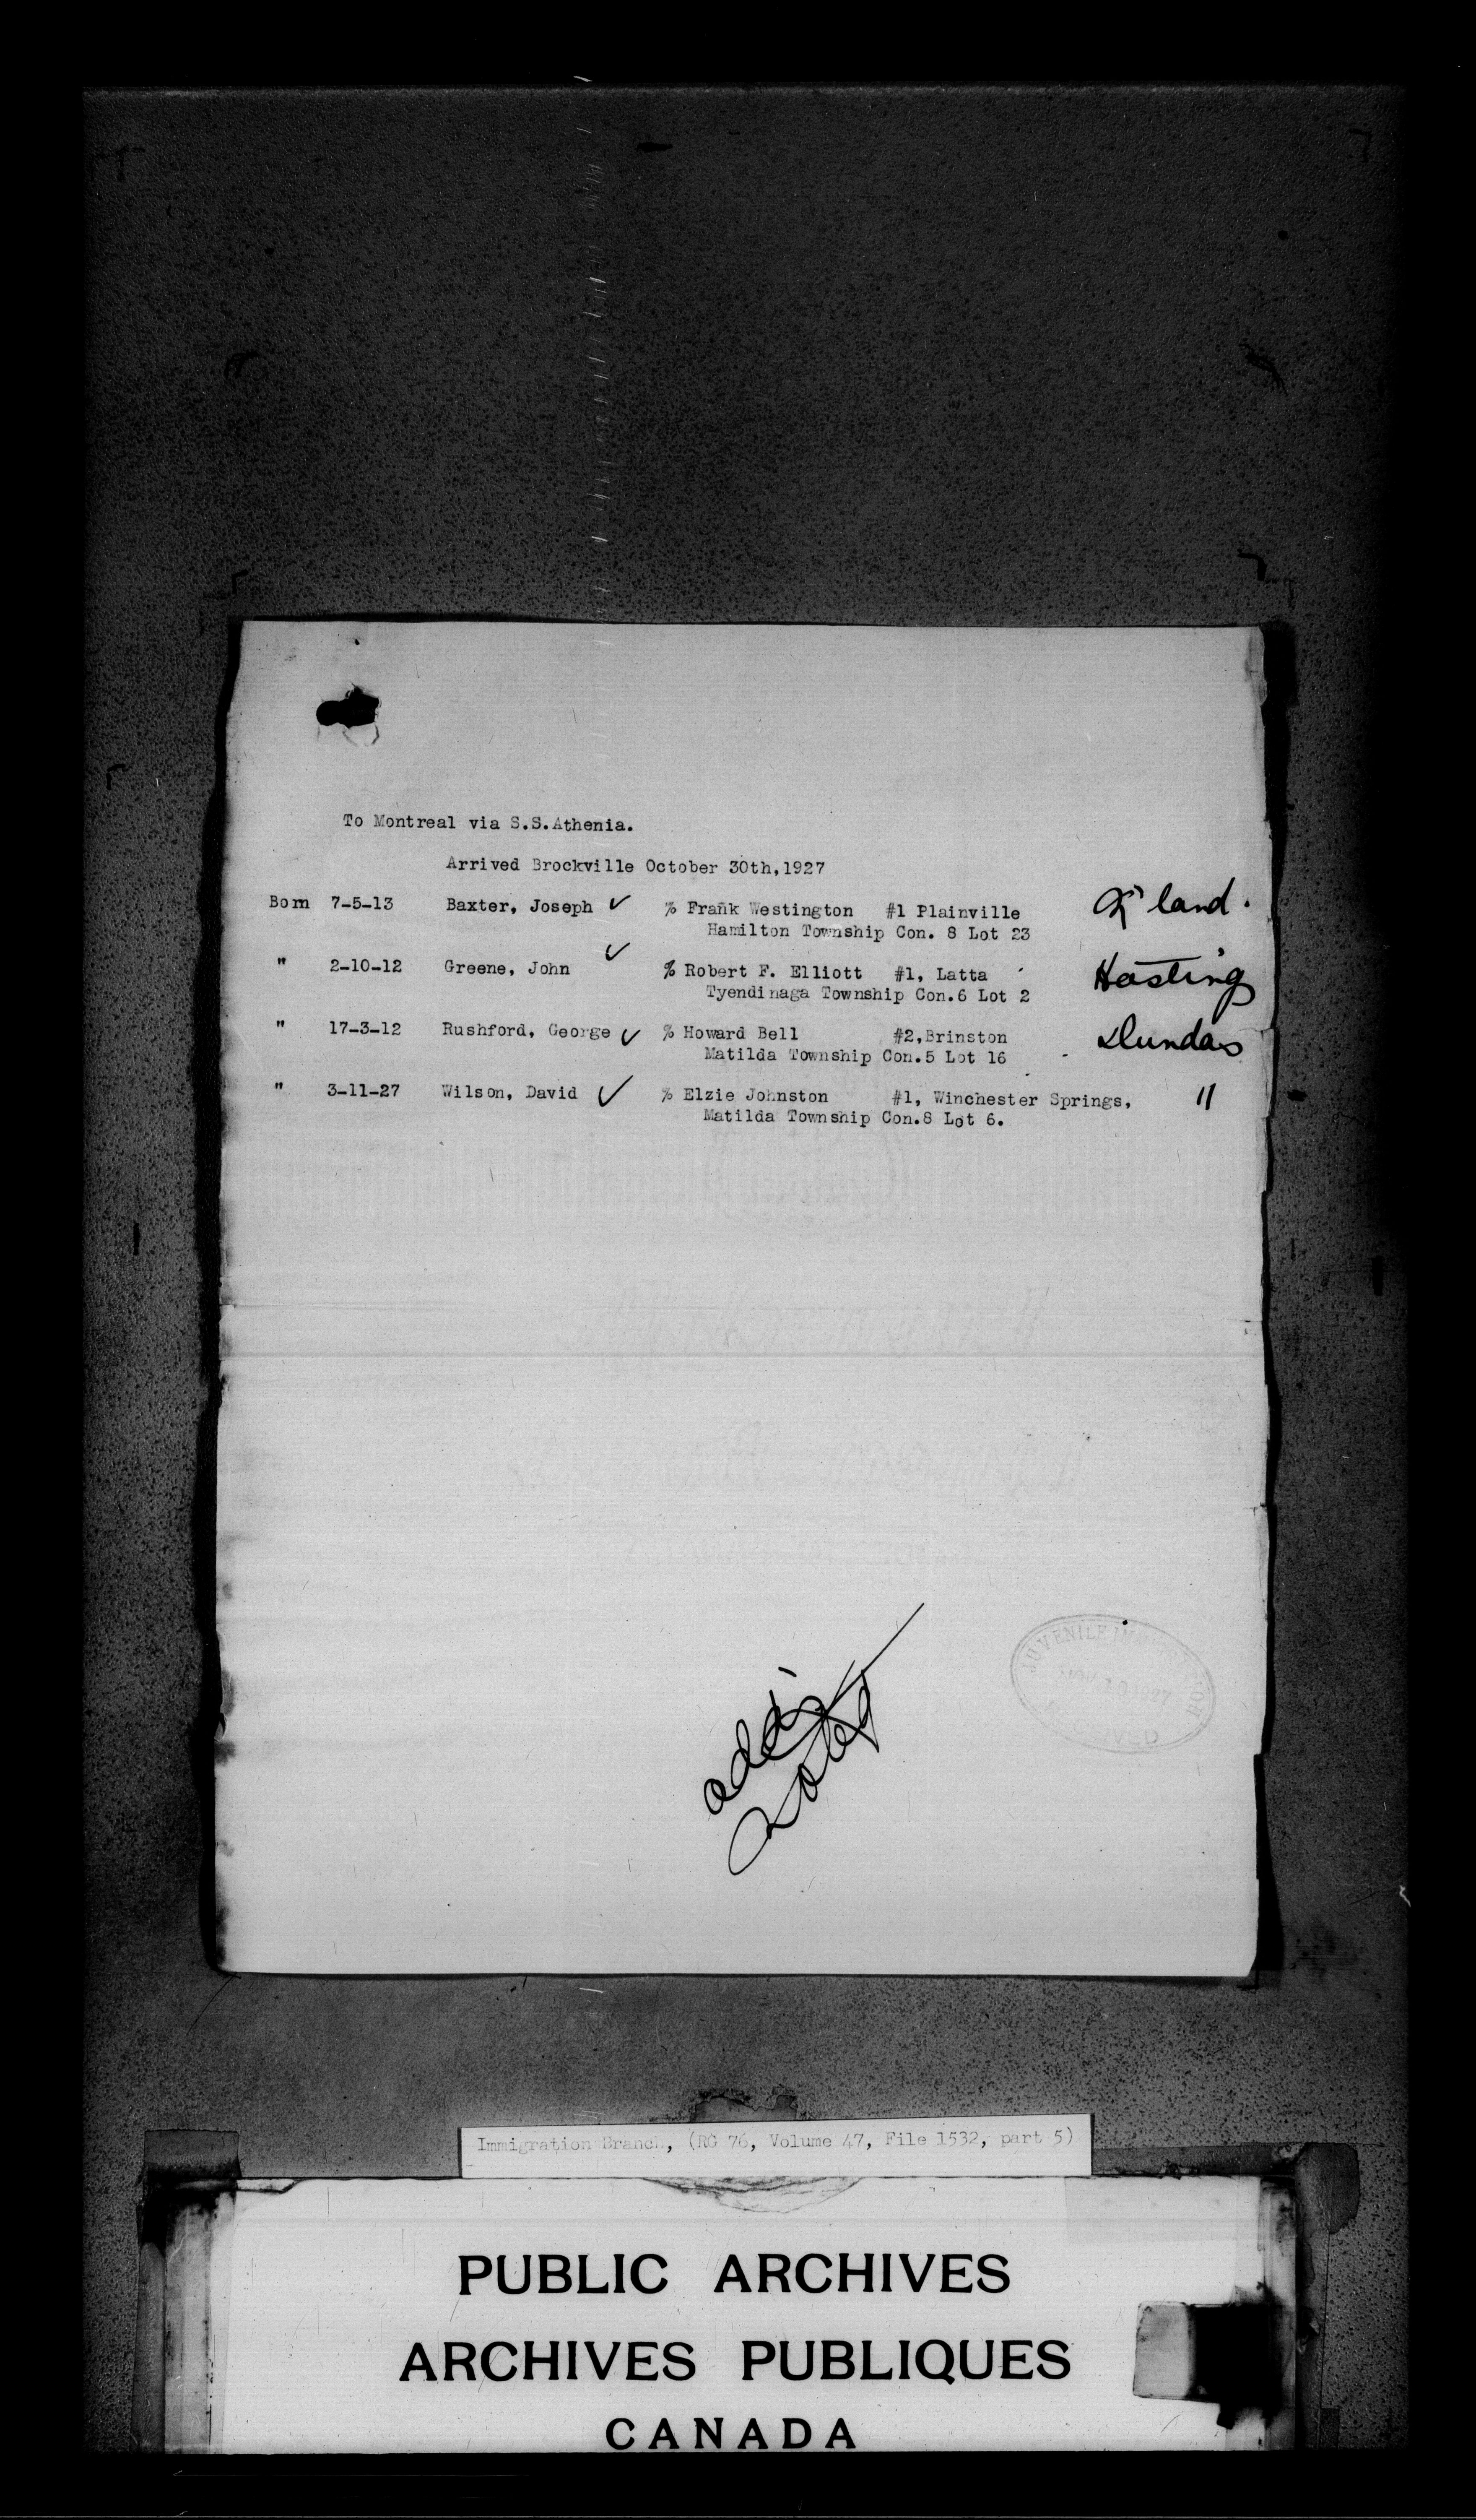 To Montreal via S.S.Athenia.
Arrived Brockville October 30th,1927
Born 7-5-13 Baxter, Joseph ✓ % Frank Westington #1 Plainville
Hamilton Township Con. 8 Lot 23
land.
" 2-10-12 Greene, John ✓ % Robert F. Elliott #1, Latta
Tyendinaga Township Con.6 Lot 2
Hastings
" 17-3-12 Rushford, George ✓ % Howard Bell #2,Brinston
Matilda Township Con.5 Lot 16
Dundas
" 3-11-27 Wilson, David ✓ % Elzie Johnston #1, Winchester Springs,
Matilda Township Con.8 Lot 6.
"
add's
noted
JUVENILE IMMIGRATION
NOV 10 1927
RECEIVED
Immigration Branch, (RG 76, Volume 47, File 1532, part 5)
PUBLIC ARCHIVES
ARCHIVES PUBLIQUES
CANADA